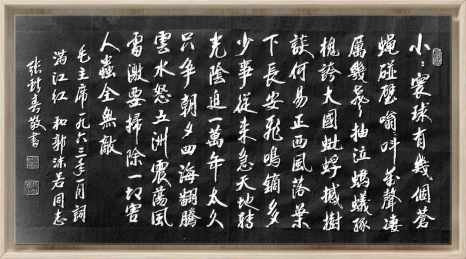 小々寰球有幾個蒼
蝇碰壁嗡々叫幾聲凄
厲幾聲抽泣螞蟻緣
槐誇大國蚍蜉撼樹
談何易正西風落葉
下長安飛鳴鏑多
少事從来急天地轉
光陰迫一萬年太久
只争朝夕四海翻騰
雲水怒五洲震蕩風
雷激要掃除一切害
人蟲全無敵
毛主席一九六三年一月詞
满江红 和郭沫若同志
張 春敬書